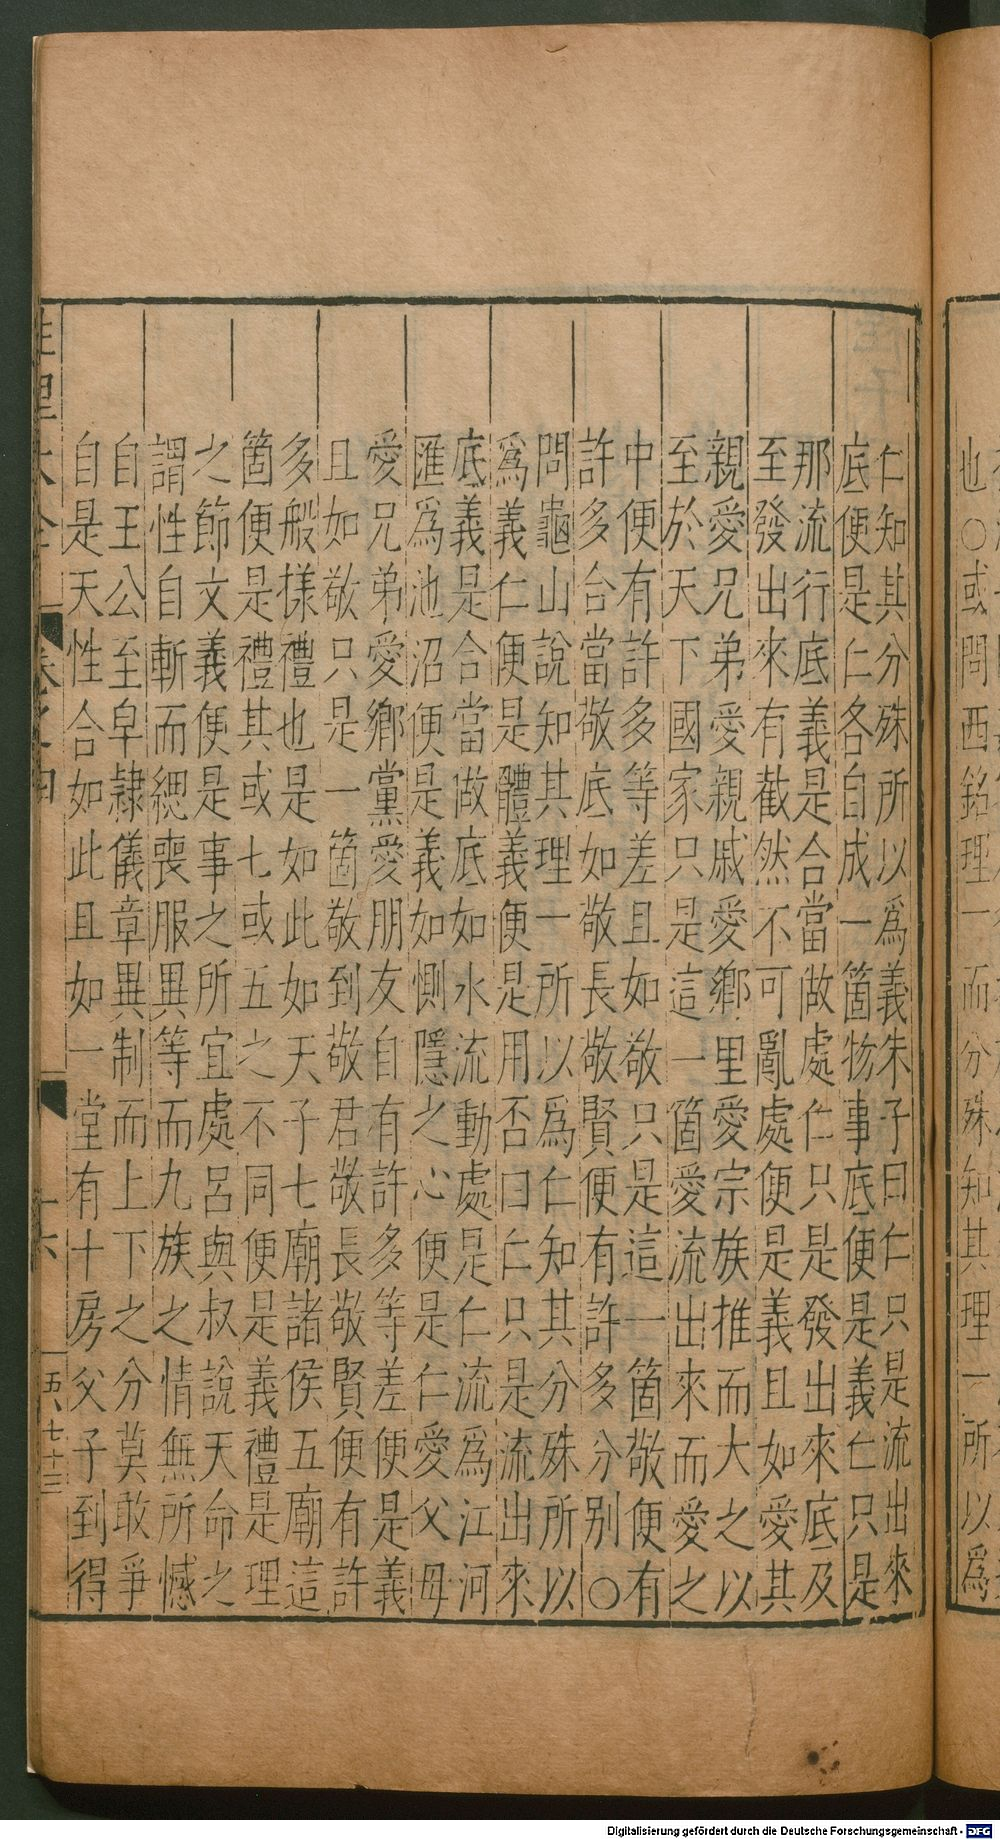 也○或問西銘理一而分殊知其理一所以爲
仁知其分殊所以爲義朱子曰仁只是流出來
底便是仁各自成一箇物事底便是義仁只是
那流行底義是合當做處仁只是發出來底及
至發出來有截然不可亂處便是義且如愛其
親愛兄弟愛親戚愛鄉里愛宗族推而大之以
至於天下國家只是這一箇愛流出來而愛之
中便有許多等差且如敬只是這一箇敬便有
許多合當敬底如敬長敬賢便有許多分別○
問龜山說知其理一所以爲仁知其分殊所以
爲義仁便是體義便是用否曰仁只是流出來
底義是合當做底如水流動處是仁流爲江河
匯爲池沼便是義如惻隱之心便是仁愛父母
愛兄弟愛鄉黨愛朋友自有許多等差便是義
且如敬只是一箇敬到敬君敬長敬賢便有許
多般樣禮也是如此如天子七廟諸侯五廟這
箇便是禮其或七或五之不同便是義禮是理
之節文義便是事之所宜處呂與叔說天命之
謂性自斬而緦喪服異等而九族之情無所憾
自王公至皁隸儀章異制而上下之分莫敢爭
自是天性合如此且如一堂有十房父子到得
性理大全 卷之四 十六 五、七十三
Digitalisierung gefördert durch die Deutsche Forschungsgemeinschaft - DFG